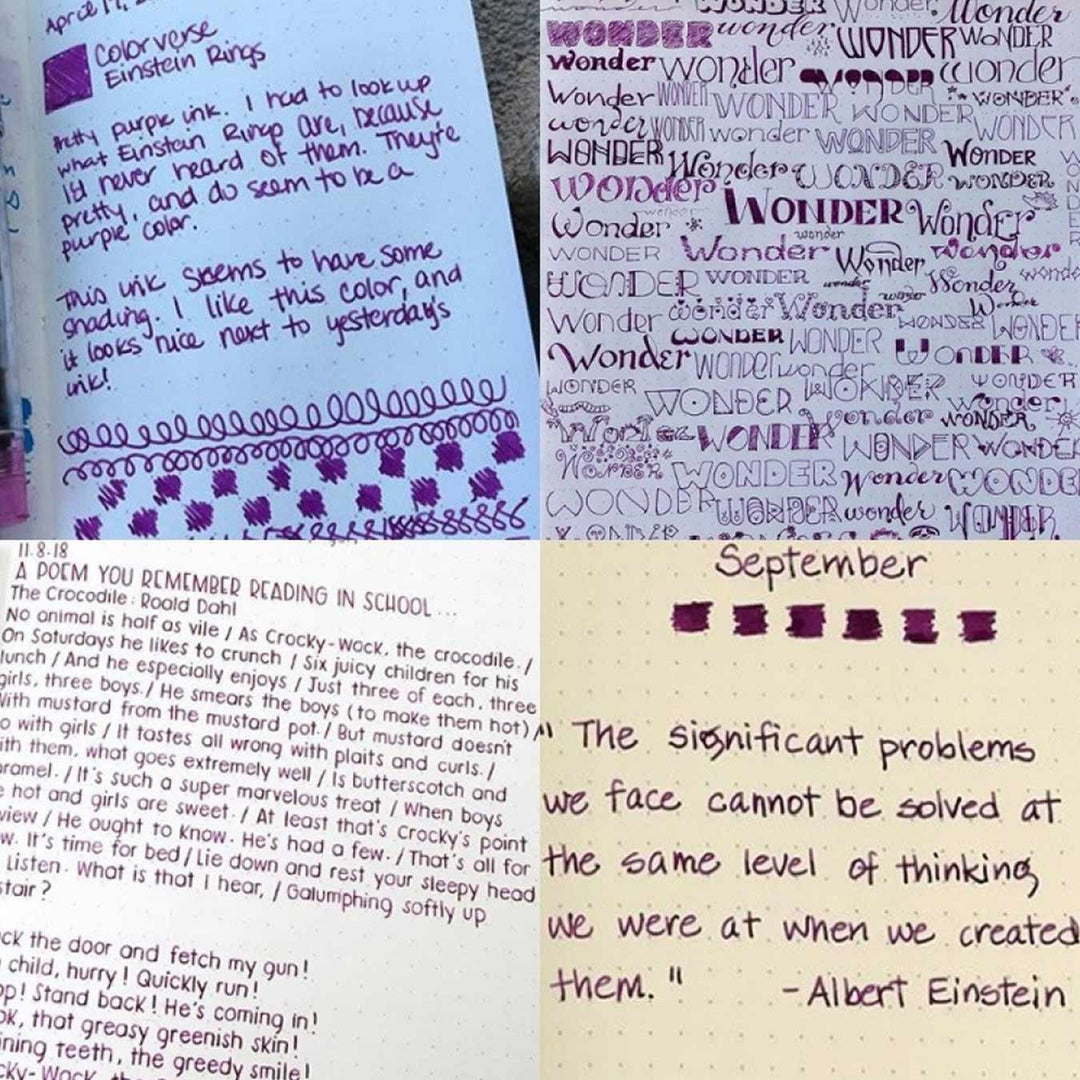 April 17,
Colorverse
Einstein Rings
Pretty purple ink. I had to look up
what Einstein Rings are, because
I'd never heard of them. They're
pretty, and do seem to be a
purple color.
This ink seems to have some
shading. I like this color, and
it looks nice next to yesterday's
ink!
WONDER Wonder Wonder
WONDER wonder WONDER WONDER
Wonder wonder WONDER wonder
Wonder WONDER WONDER WONDER WONDER
wonder WONDER wonder WONDER WONDER
WONDER Wonder WONDER WONDER
wonder WONDER WONDER
Wonder wonder WONDER Wonder
wonder
WONDER Wonder Wonder wonder
WONDER WONDER wonder Wonder wonder
Wonder wonder Wonder wonder Wonder
WONDER WONDER WONDER WONDER
Wonder WONDER wonder WONDER
WONDER WONDER WONDER WONDER
wonder Wonder
WONDER wonder WONDER
WONDER WONDER WONDER
Wonder WONDER Wonder WONDER
WONDER WONDER wonder WONDER
11.8.18
A POEM YOU REMEMBER READING IN SCHOOL...
The Crocodile: Roald Dahl
No animal is half as vile / As Crocky-Wock, the crocodile. /
On Saturdays he likes to crunch / Six juicy children for his
lunch / And he especially enjoys / Just three of each, three
girls, three boys. / He smears the boys (to make them hot) /
With mustard from the mustard pot. / But mustard doesn't
o with girls / It tastes all wrong with plaits and curls. /
ith them, what goes extremely well / Is butterscotch and
aramel. / It's such a super marvelous treat / When boys
e hot and girls are sweet. / At least that's Crocky's point
view / He ought to know. He's had a few. / That's all for
w. It's time for bed / Lie down and rest your sleepy head
Listen. What is that I hear, / Galumphing softly up
stair?
ck the door and fetch my gun!
child, hurry! Quickly run!
op! Stand back! He's coming in!
ok, that greasy greenish skin!
ining teeth, the greedy smile!
cky-Wock, the
September
" The significant problems
we face cannot be solved at
the same level of thinking
we were at when we created
them. " - Albert Einstein